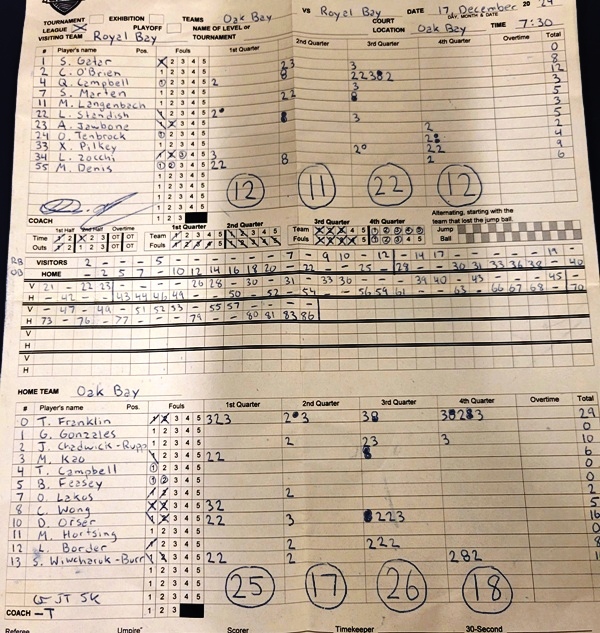 TOURNAMENT EXHIBITION TEAMS Oak Bay VS Royal Bay DATE 17, December 20 24
LEAGUE PLAYOFF DAY, MONTH & DATE
NAME OF LEVEL or TOURNAMENT COURT LOCATION Oak Bay TIME 7:30
VISITING TEAM Royal Bay
# Player's name Pos. Fouls 1st Quarter 2nd Quarter 3rd Quarter 4th Quarter Overtime Total
1 S. Gatar 1 2 3 4 5 23 3 0
2 C. O'Brien 1 2 3 4 5 8
4 Q. Campbell 1 2 3 4 5 2 12
7 S. Marten 1 2 3 4 5 3 3
11 M. Langenbach 1 2 3 4 5 22 5
22 L. Standish 1 2 3 4 5 3 5
23 A. Jawbone 1 2 3 4 5 2
24 O. Tenbrock 1 2 3 4 5 4
33 X. Pilkey 1 2 3 4 5 22 9
34 L. Zocchi 1 2 3 4 5 3 2 6
55 M. Denis 1 2 3 4 5 22 8
1 2 3 4 5
12 11 22 12
COACH 1 2 3
Alternating, starting with the team that lost the jump ball.
1st Half 2nd Half Overtime 1st Quarter 2nd Quarter 3rd Quarter 4th Quarter
Time Outs 1 2 OT OT Team Fouls 1 2 3 4 5 Team Fouls Jump Ball
RB VISITORS 2 - - 5 - - - - - - 7 - 9 10 - 12 - 14 17 - - - - - 19 -
OB HOME - 2 5 7 - 10 12 14 16 18 20 - 22 - - 25 - 28 - - 30 31 33 36 38 - 40
V 21 - 22 23 - - - 26 28 - 30 - 31 - 33 36 - - - 39 40 - 43 - - - 45 -
H - 42 - - 43 44 46 49 - - 50 - 52 - 54 - - 56 59 61 - - 63 - 66 67 68 - 70
V - 47 - 49 - 51 52 53 - 55 57 - - - -
H 73 - 76 - 77 - - - 79 - - 80 81 83 86
V
H
V
H
HOME TEAM Oak Bay
# Player's name Pos. Fouls 1st Quarter 2nd Quarter 3rd Quarter 4th Quarter Overtime Total
0 T. Franklin 1 2 3 4 5 323 29
1 G. Gonzales 1 2 3 4 5 0
2 J. Chadwick-Rupp 1 2 3 4 5 2 23 3 10
3 M. Kao 1 2 3 4 5 22 6
4 T. Campbell 1 2 3 4 5 0
5 B. Feasey 1 2 3 4 5 0
7 O. Lakos 1 2 3 4 5 2 2
8 C. Wong 1 2 3 4 5 32 5
10 D. Orser 1 2 3 4 5 22 3 223 16
11 M. Hortsing 1 2 3 4 5 0
12 L. Border 1 2 3 4 5 2 222 8
13 S. Wiwcharuk-Burr 1 2 3 4 5 22 2 282
1 2 3 4 5
25 17 26 18
COACH 1 2 3
Referee Umpire Scorer Timekeeper 30-Second